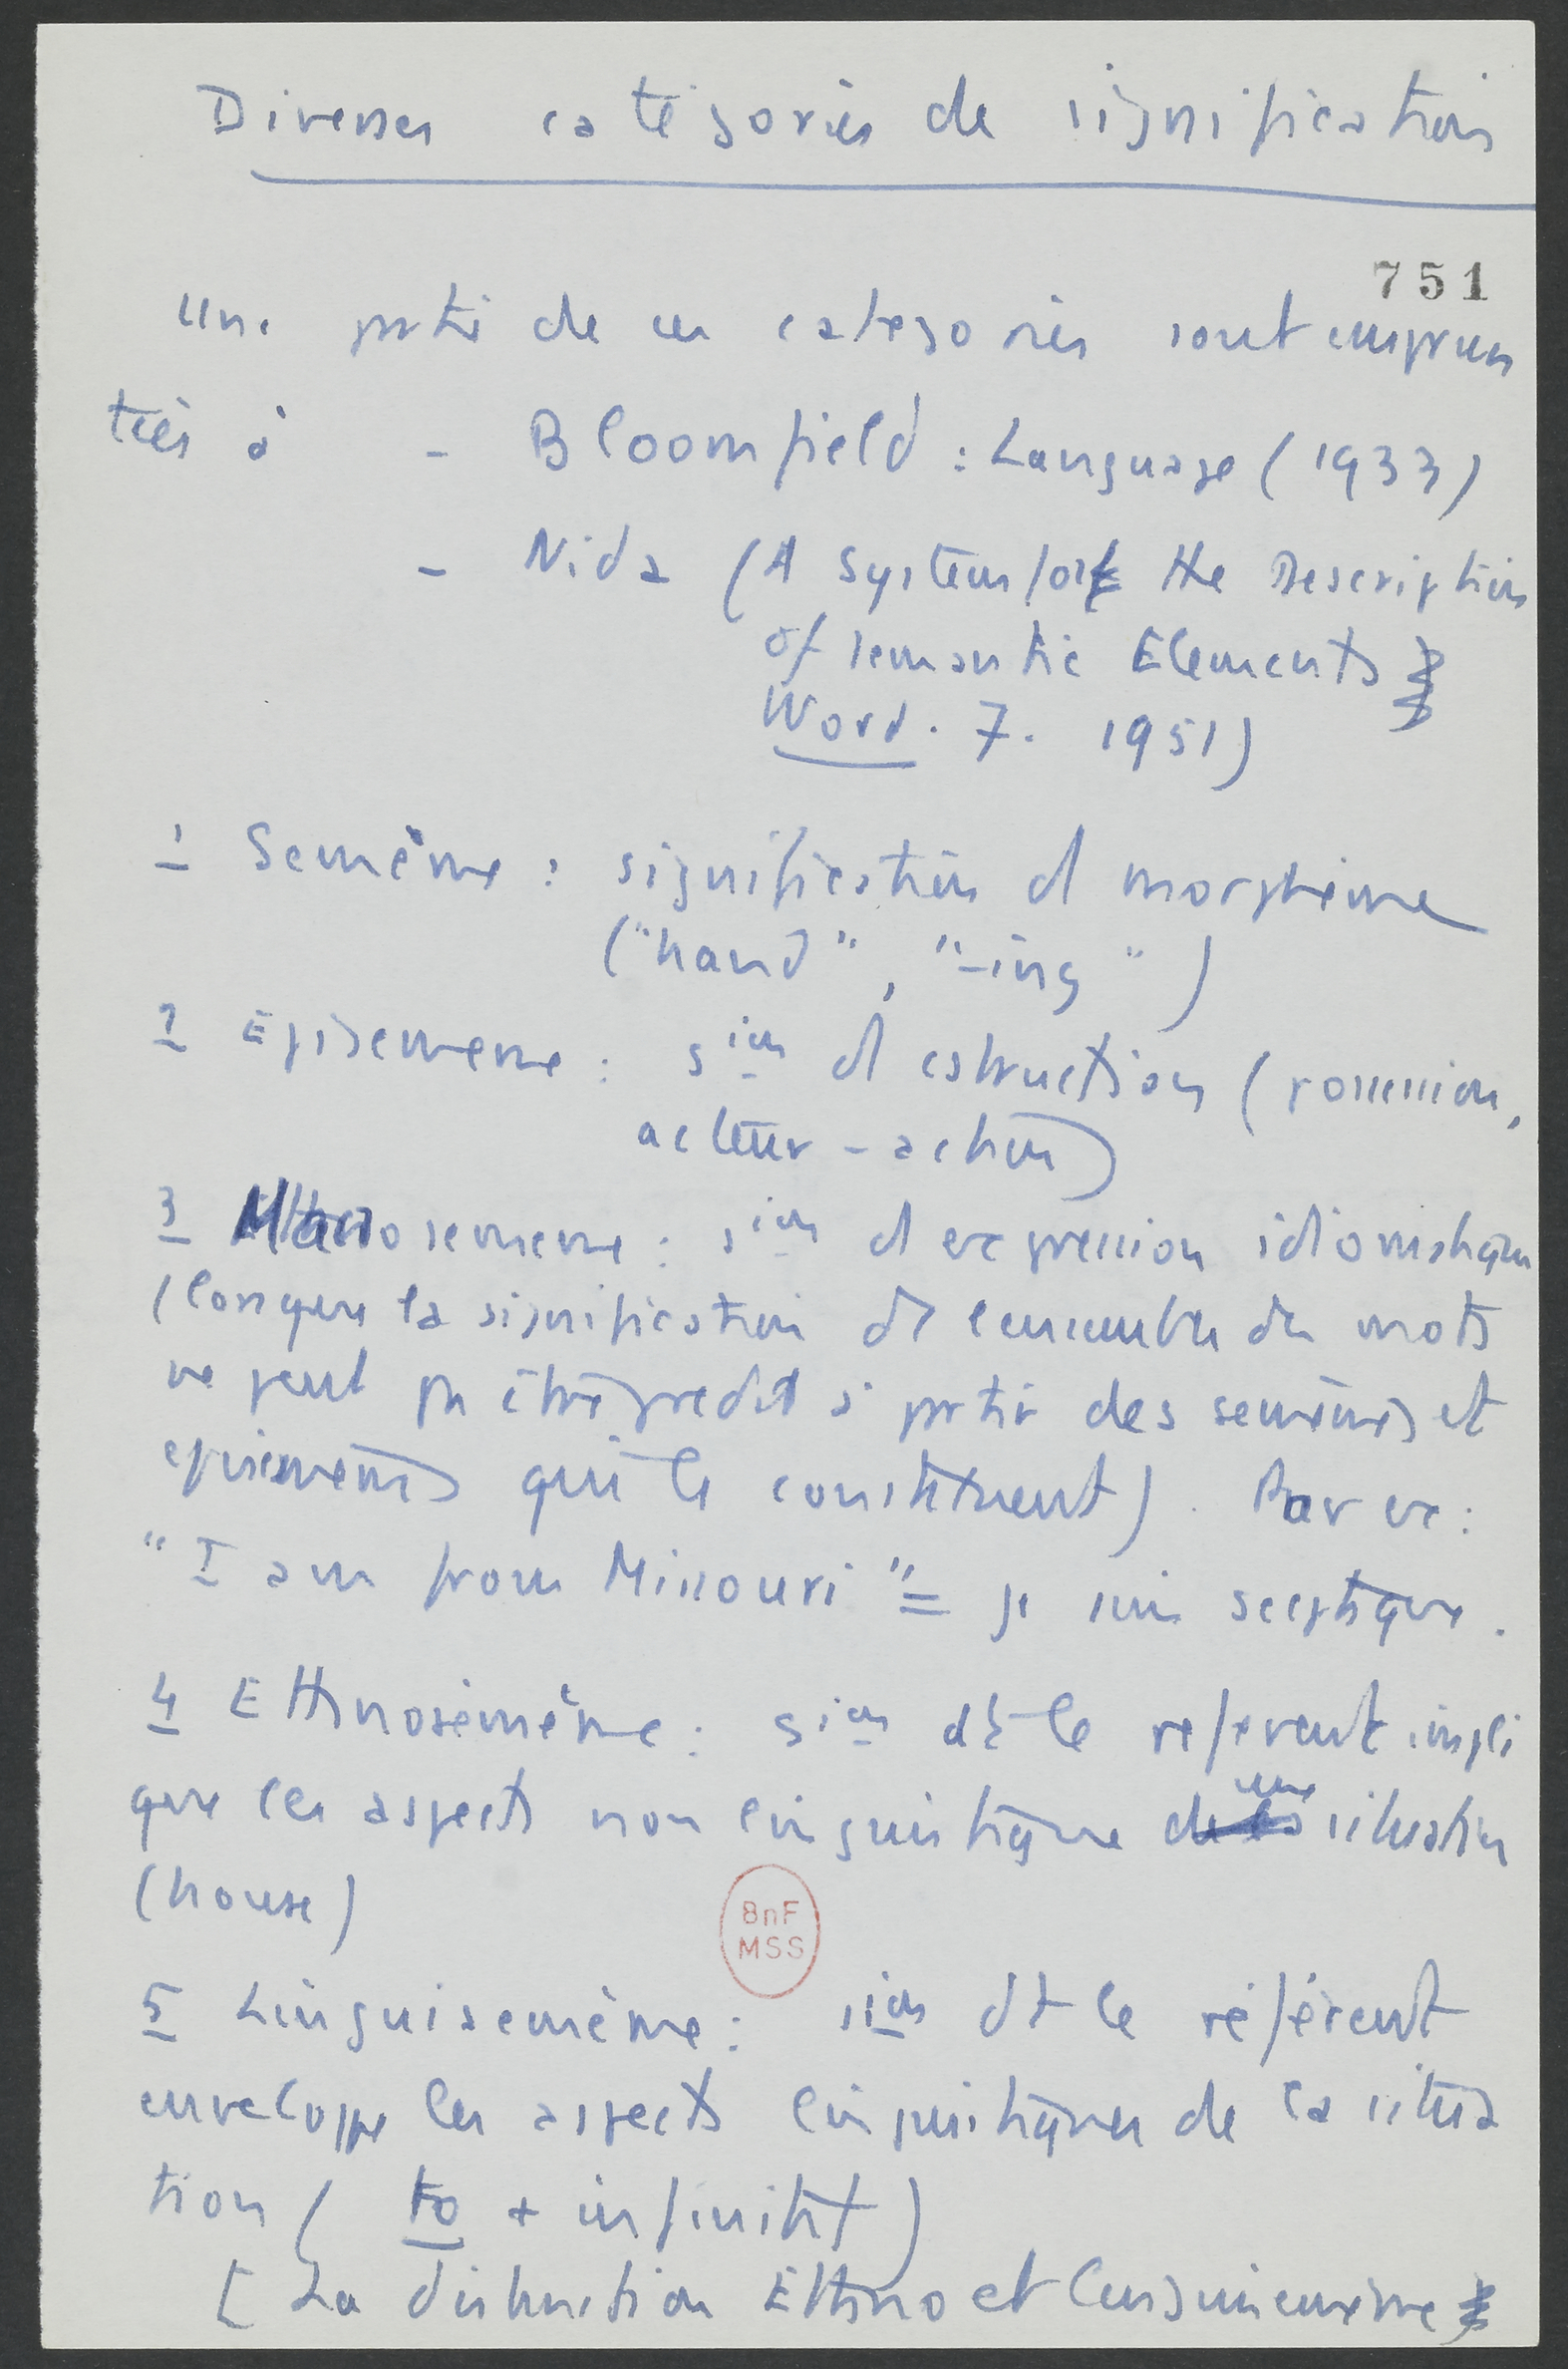 Diverses catégories de signification
751
Une partie de ces catégories sont emprun
tées à - Bloomfield : Language (1933)
- Nida (A System for the Description
of semantic Elements
Word. 7. 1951)
1 Semème : signification d morphème
("hand", "-ing")
2 Episememe : sion d cstruction (possession,
acteur - action)
3 Macrosememe : sion d expression idiomatique
(lorsque la signification de l'ensemble des mots
ne peut pas être prédit à partir des semèmes et
episemèmes qui le constituent). Par ex :
"I am from Missouri" = je suis sceptique.
4 Ethnosémème : sion dt le referent impli
que les aspects non linguistique d'une situation
(house)
BnF
MSS
5 Linguisemème : sion dt le référent
enveloppe les aspects linguistiques de la situa
tion ( to + infinitif)
[ La distinction Ethno et linguisememe